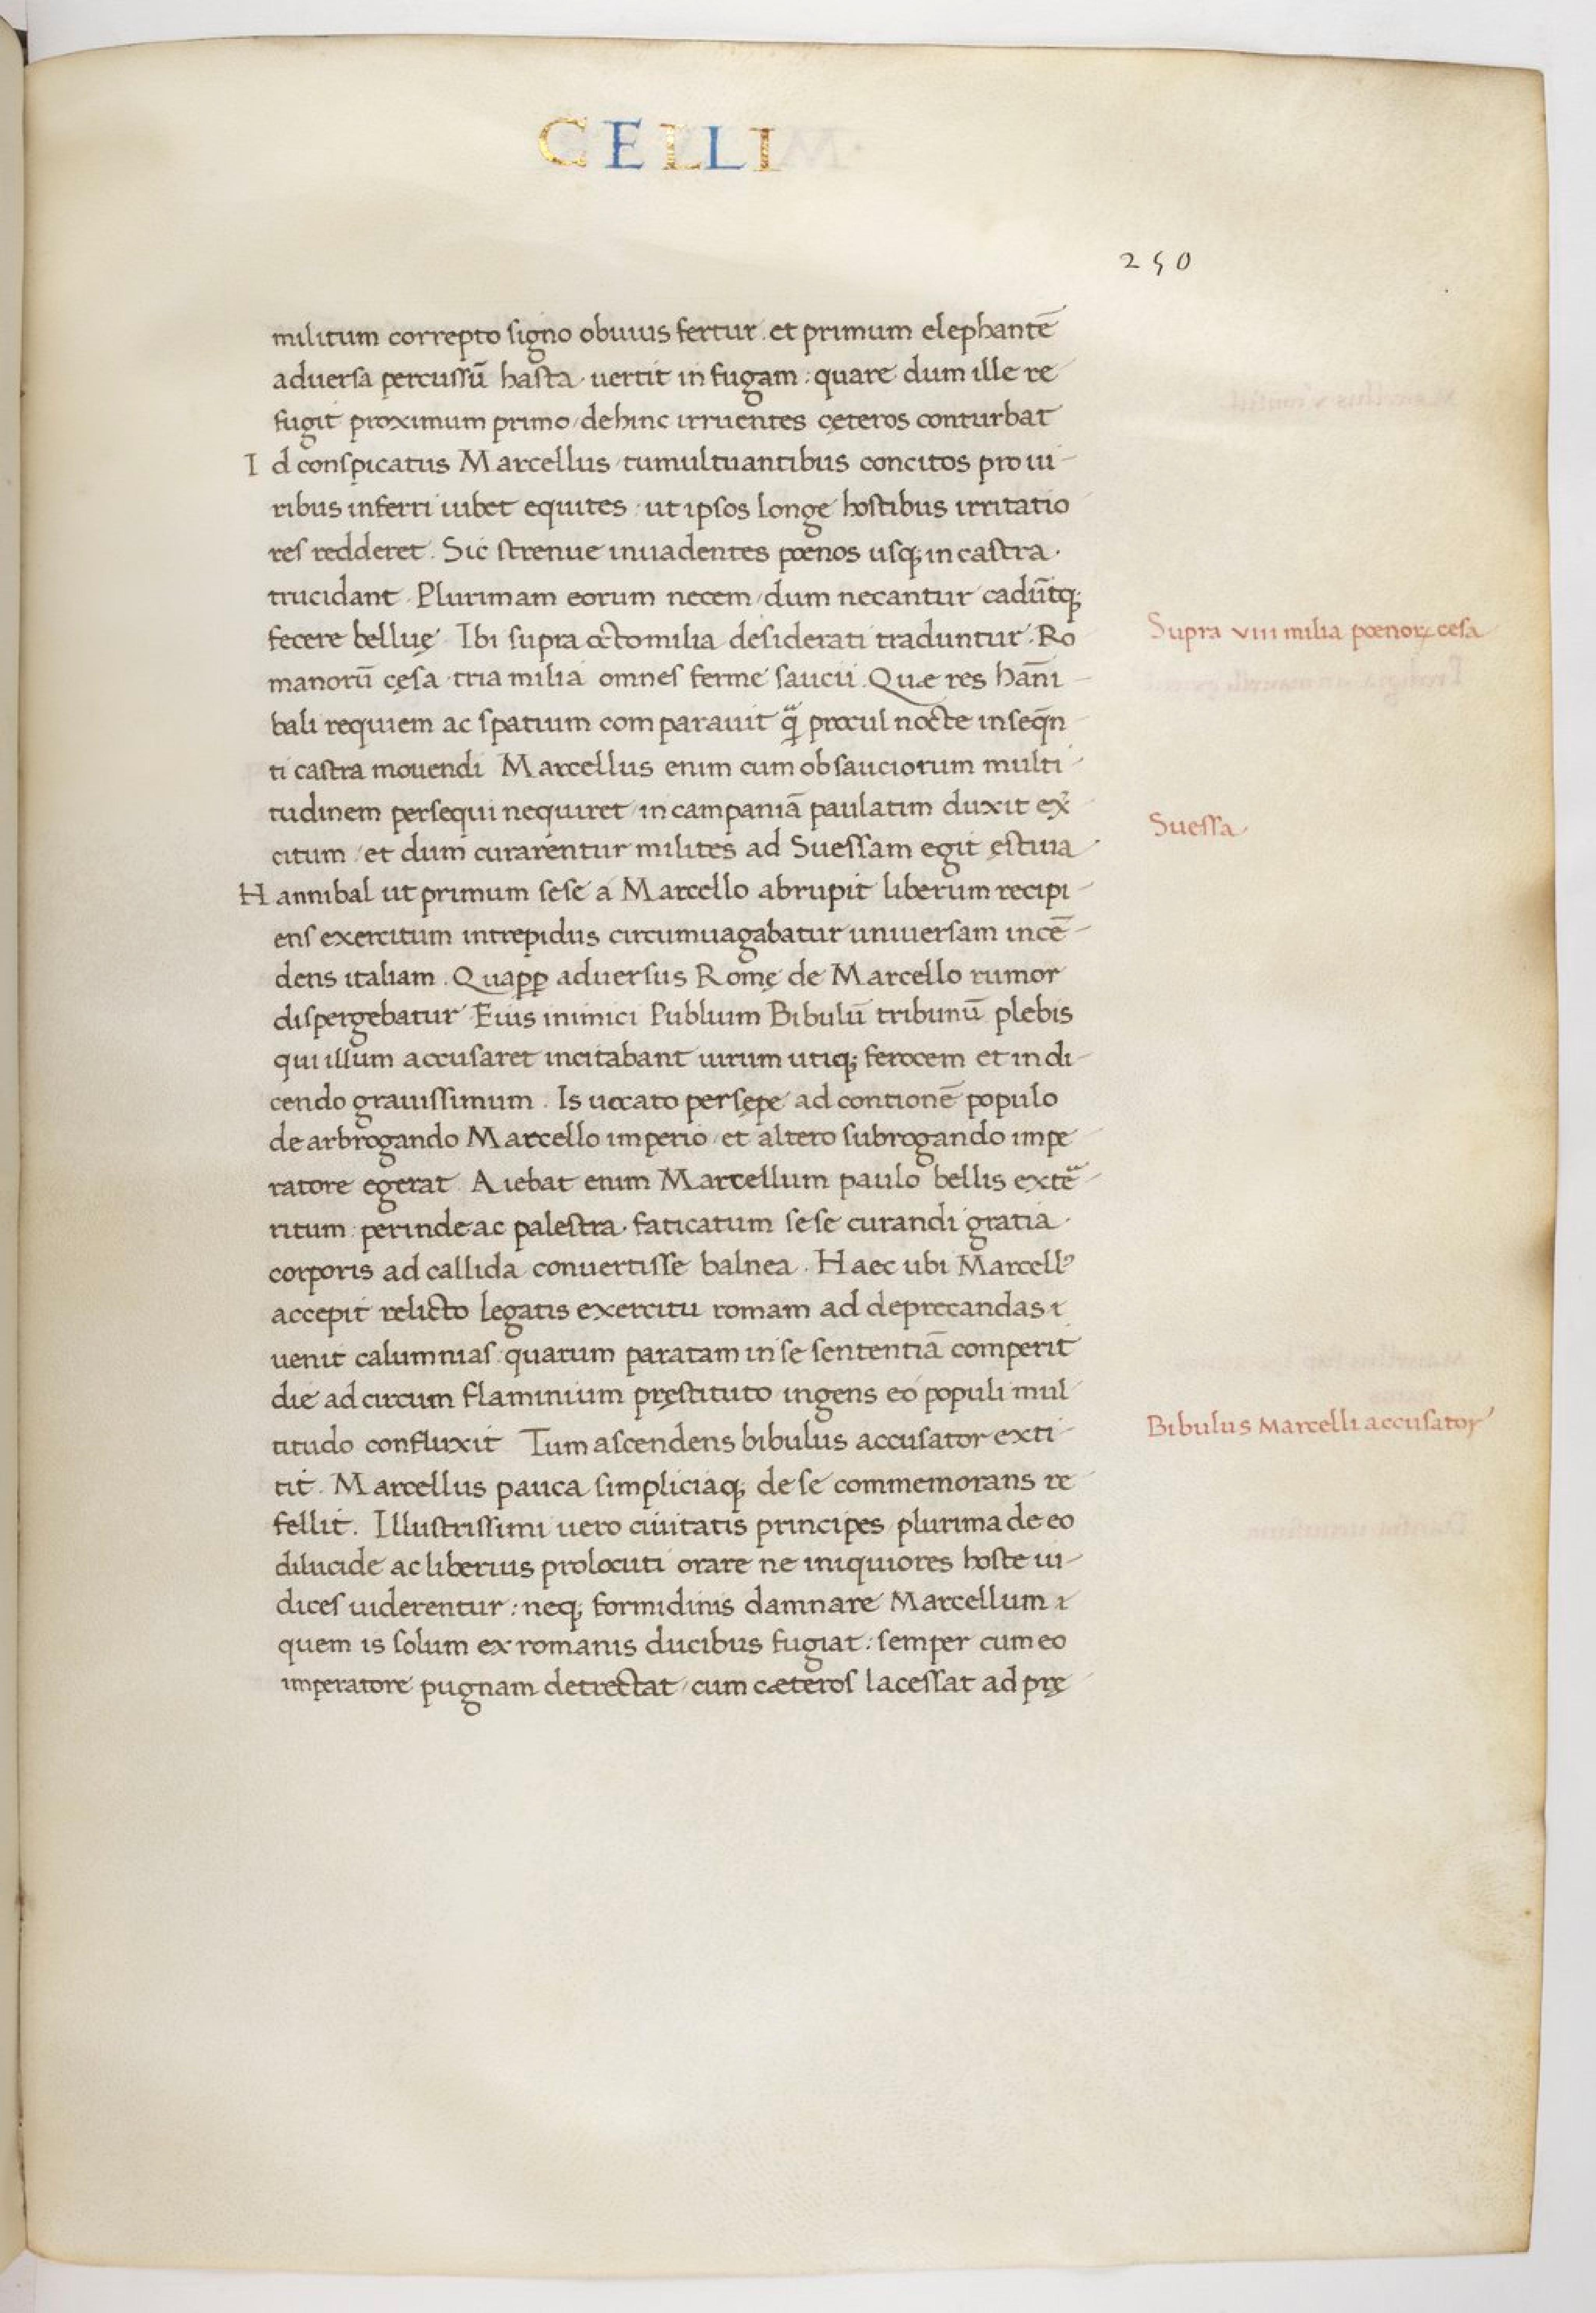 CELLI
250
militum correpto signo obuius fertur. et primum elephantē
aduersa percussū hasta. uertit in fugam: quare dum ille re
fugit proximum primo/dehinc irruentes cęteros conturbat
Id conspicatus Marcellus/tumultuantibus concitos pro ui-
ribus inferri iubet equites. ut ipsos longe hostibus irritatio
res redderet. Sic strenue inuadentes pœnos usq; in castra.
trucidant. Plurimam eorum necem/dum necantur cadūtq;
fecere belluę. Ibi supra octo milia desiderati traduntur. Ro
Supra viii milia pœnoꝝ cesa
manorū cęsa. tria milia omnes ferme saucii. Quae res hāni-
bali requiem ac spatium comparauit qͣ procul nocte inseqn̄-
ti castra mouendi. Marcellus enim cum ob sauciorum multi-
tudinem persequi nequiret/in campaniā paulatim duxit ex̓
Suessa
citum/et dum curarentur milites ad Suessam egit ęstiua.
Hannibal ut primum sese a Marcello abrupit liberum recipi-
ens exercitum intrepidus circumuagabatur uniuersam incē-
dens italiam. Quaꝓꝑ aduersus Romę de Marcello rumor
dispergebatur. Eius inimici Publium Bibulū tribunū plebis
qui illum accusaret incitabant uirum utiq; ferocem et in di-
cendo grauissimum. Is uocato persępe ad contionē populo
de arbrogando Marcello imperio/et altero subrogando impe-
ratore egerat. Aiebat enim Marcellum paulo bellis exteͣ-
ritum: perinde ac palestra. faticatum sese curandi gratia.
corporis ad callida conuertisse balnea. Haec ubi Marcellꝰ
accepit relicto legatis exercitu romam ad deprecandas
uenit calumnias: quarum paratam in se sententiā comperit
die ad circum flaminium pręstituto ingens eo populi mul-
Bibulus Marcelli accusator
titudo confluxit. Tum ascendens bibulus accusator exti-
tit. Marcellus pauca simpliciaq; de se commemorans re-
fellit. Illustrissimi uero ciuitatis principes plurima de eo
dilucide ac liberius prolocuti orare ne iniquiores hoste iu-
dices uiderentur: neq; formidinis damnare Marcellum
quem is solum ex romanis ducibus fugiat: semper cum eo
imperatore pugnam detrectat/cum cæteros lacessat ad prę-